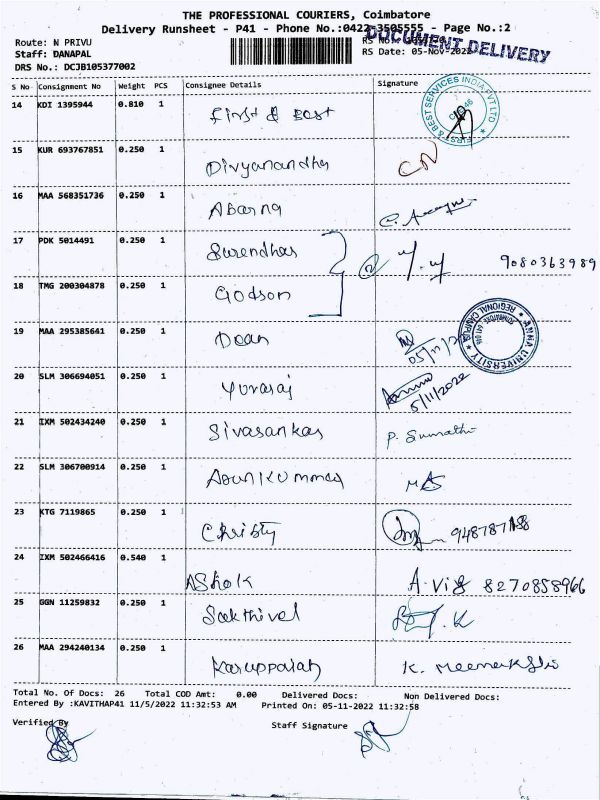 THE PROFESSIONAL COURIERS, Coimbatore
Delivery Runsheet - P41 - Phone No.:0422-3505555 - Page No.:2
DOCUMENT DELIVERY
Route: N PRIVU
Staff: DANAPAL RS Date: 05-Nov-2022
DRS No.: DCJB105377002
S No Consignment No Weight PCS Consignee Details Signature
14 KDI 1395944 0.810 1 First & Best
FIRST & BEST SERVICES INDIA PVT LTD
15 KUR 693767851 0.250 1 Divyanandha CN
16 MAA 568351736 0.250 1 Abarna
17 PDK 5014491 0.250 1 Surendhar 9080363989
18 TMG 200304878 0.250 1 Godson
19 MAA 295385641 0.250 1 Dean
ANNA UNIVERSITY REGIONAL CAMPUS
20 SLM 306694051 0.250 1 Yuvaraj 5/11/2022
21 IXM 502434240 0.250 1 Sivasankar P. Sumathi
22 SLM 306700914 0.250 1 Arunkummar
23 KTG 7119865 0.250 1 Christy
24 IXM 502466416 0.540 1 Ashok A.Vij 8270858966
25 GGN 11259832 0.250 1 Sakthivel
26 MAA 294240134 0.250 1 Karuppaiah
Total No. Of Docs: 26 Total COD Amt: 0.00 Delivered Docs: Non Delivered Docs:
Entered By :KAVITHAP41 11/5/2022 11:32:53 AM Printed On: 05-11-2022 11:32:58
Verified By Staff Signature